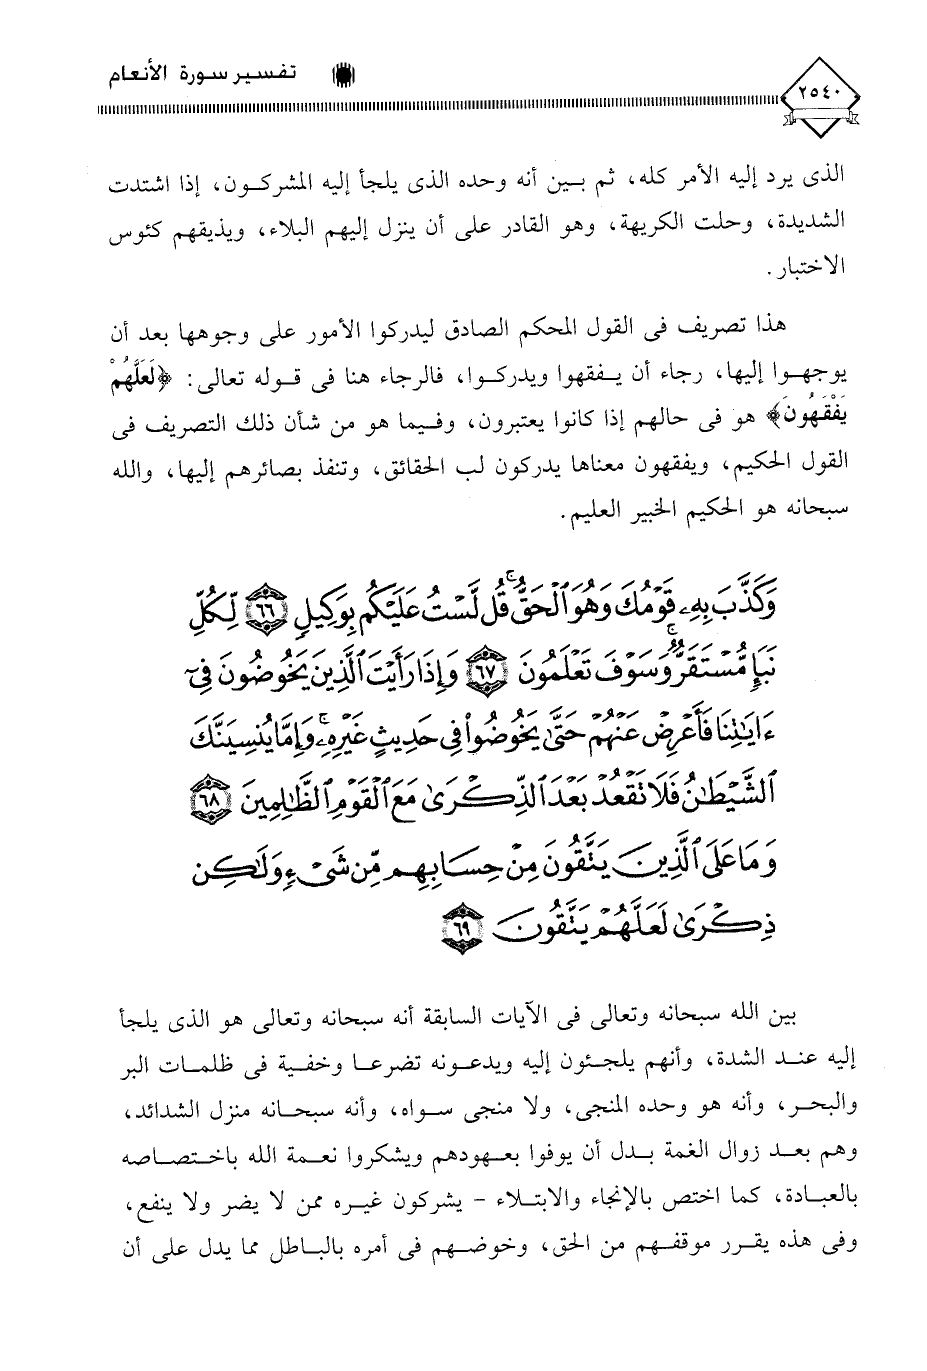 تفسير سورة الأنعام
٢٥٤٠
الذى يرد إليه الأمر كله، ثم بين أنه وحده الذى يلجأ إليه المشركون، إذا اشتدت
الشديدة، وحلت الكريهة، وهو القادر على أن ينزل إليهم البلاء، ويذيقهم كئوس
الاختبار.
هذا تصريف فى القول المحكم الصادق ليدركوا الأمور على وجوهها بعد أن
يوجهوا إليها، رجاء أن يفقهوا ويدركوا، فالرجاء هنا فى قوله تعالى: ﴿لَعَلَّهُمْ
يَفْقَهُونَ﴾ هو فى حالهم إذا كانوا يعتبرون، وفيما هو من شأن ذلك التصريف فى
القول الحكيم، ويفقهون معناها يدركون لب الحقائق، وتنفذ بصائرهم إليها، والله
سبحانه هو الحكيم الخبير العليم.
وَكَذَّبَ بِهِۦ قَوْمُكَ وَهُوَ ٱلْحَقُّ ۚ قُل لَّسْتُ عَلَيْكُم بِوَكِيلٍ ٦٦ لِّكُلِّ
نَبَإٍ مُّسْتَقَرٌّ ۚ وَسَوْفَ تَعْلَمُونَ ٦٧ وَإِذَا رَأَيْتَ ٱلَّذِينَ يَخُوضُونَ فِىٓ
ءَايَٰتِنَا فَأَعْرِضْ عَنْهُمْ حَتَّىٰ يَخُوضُوا۟ فِى حَدِيثٍ غَيْرِهِۦ ۚ وَإِمَّا يُنسِيَنَّكَ
ٱلشَّيْطَٰنُ فَلَا تَقْعُدْ بَعْدَ ٱلذِّكْرَىٰ مَعَ ٱلْقَوْمِ ٱلظَّٰلِمِينَ ٦٨
وَمَا عَلَى ٱلَّذِينَ يَتَّقُونَ مِنْ حِسَابِهِم مِّن شَىْءٍ وَلَٰكِن
ذِكْرَىٰ لَعَلَّهُمْ يَتَّقُونَ ٦٩
بين الله سبحانه وتعالى فى الآيات السابقة أنه سبحانه وتعالى هو الذى يلجأ
إليه عند الشدة، وأنهم يلجئون إليه ويدعونه تضرعا وخفية فى ظلمات البر
والبحر، وأنه هو وحده المنجى، ولا منجى سواه، وأنه سبحانه منزل الشدائد،
وهم بعد زوال الغمة بدل أن يوفوا بعهودهم ويشكروا نعمة الله باختصاصه
بالعبادة، كما اختص بالإنجاء والابتلاء - يشركون غيره ممن لا يضر ولا ينفع،
وفى هذه يقرر موقفهم من الحق، وخوضهم فى أمره بالباطل مما يدل على أن